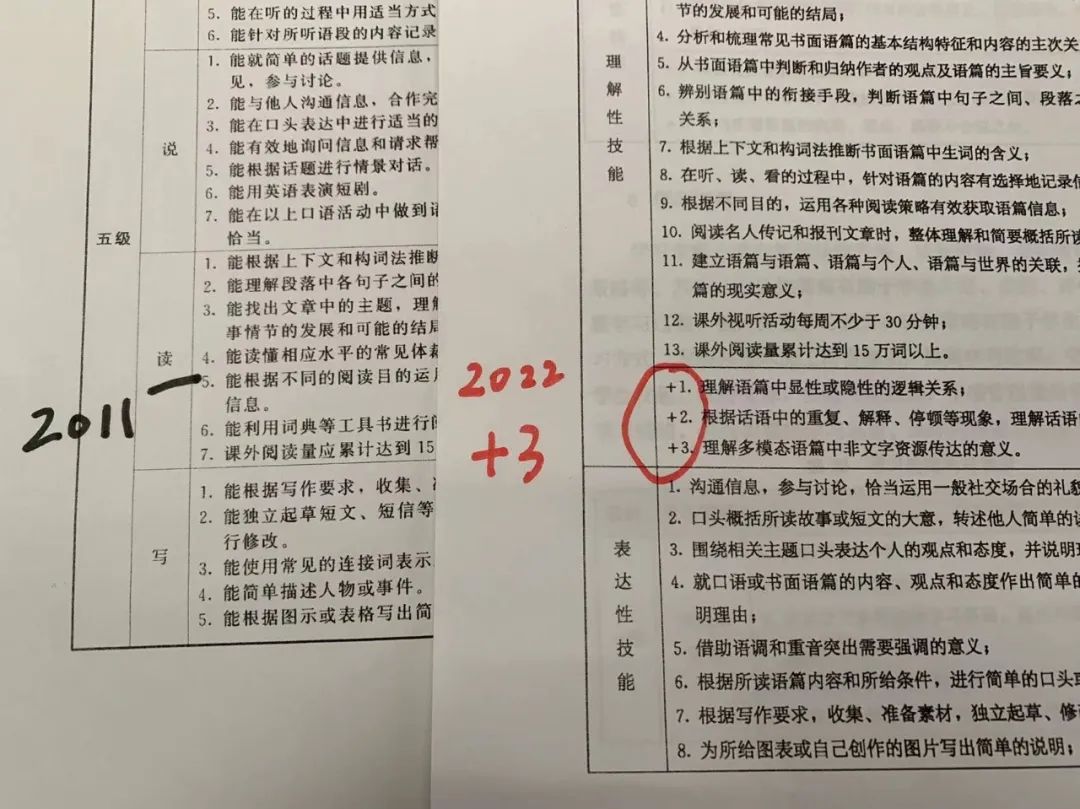 5. 能在听的过程中用适当方式
6. 能针对所听语段的内容记录
说
1. 能就简单的话题提供信息，
见，参与讨论。
2. 能与他人沟通信息，合作完
3. 能在口头表达中进行适当的
4. 能有效地询问信息和请求帮
5. 能根据话题进行情景对话。
6. 能用英语表演短剧。
7. 能在以上口语活动中做到语
恰当。
五级
读
1. 能根据上下文和构词法推断
2. 能理解段落中各句子之间的
3. 能找出文章中的主题，理解
事情节的发展和可能的结局
4. 能读懂相应水平的常见体裁
5. 能根据不同的阅读目的运用
信息。
6. 能利用词典等工具书进行阅
7. 课外阅读量应累计达到 15
写
1. 能根据写作要求，收集、准
2. 能独立起草短文、短信等
行修改。
3. 能使用常见的连接词表示
4. 能简单描述人物或事件。
5. 能根据图示或表格写出简
2011
2022
+3
理解性技能
节的发展和可能的结局；
4. 分析和梳理常见书面语篇的基本结构特征和内容的主次关
5. 从书面语篇中判断和归纳作者的观点及语篇的主旨要义；
6. 辨别语篇中的衔接手段，判断语篇中句子之间、段落之
关系；
7. 根据上下文和构词法推断书面语篇中生词的含义；
8. 在听、读、看的过程中，针对语篇的内容有选择地记录信
9. 根据不同目的，运用各种阅读策略有效获取语篇信息；
10. 阅读名人传记和报刊文章时，整体理解和简要概括所读
11. 建立语篇与语篇、语篇与个人、语篇与世界的关联，
篇的现实意义；
12. 课外视听活动每周不少于 30 分钟；
13. 课外阅读量累计达到 15 万词以上。
+1. 理解语篇中显性或隐性的逻辑关系；
+2. 根据话语中的重复、解释、停顿等现象，理解话语
+3. 理解多模态语篇中非文字资源传达的意义。
表达性技能
1. 沟通信息，参与讨论，恰当运用一般社交场合的礼貌
2. 口头概括所读故事或短文的大意，转述他人简单的谈
3. 围绕相关主题口头表达个人的观点和态度，并说明理
4. 就口语或书面语篇的内容、观点和态度作出简单的
明理由；
5. 借助语调和重音突出需要强调的意义；
6. 根据所读语篇内容和所给条件，进行简单的口头或
7. 根据写作要求，收集、准备素材，独立起草、修改
8. 为所给图表或自己创作的图片写出简单的说明；